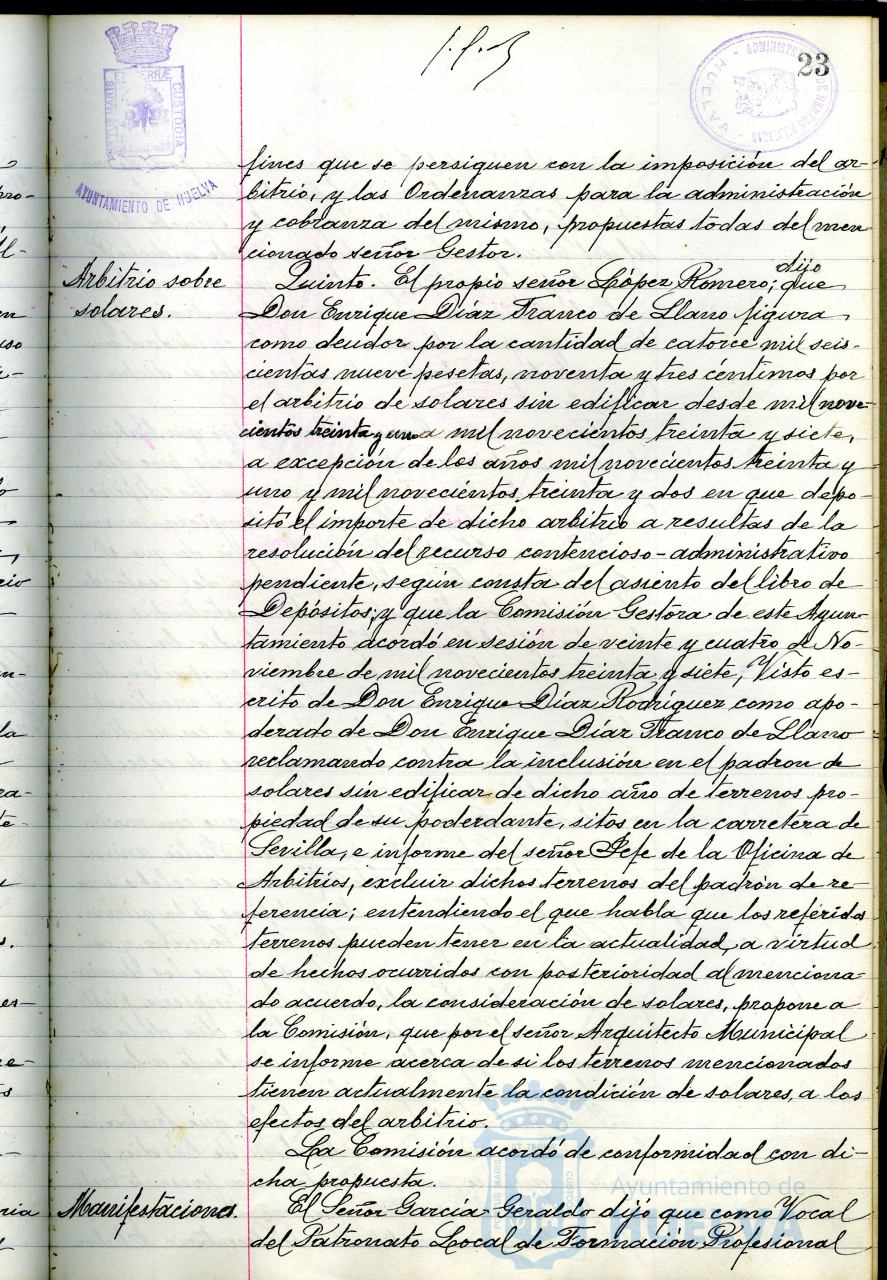 23
PORTUS MARIS ET TERRÆ CUSTODIA
AYUNTAMIENTO DE HUELVA
HUELVA
fines que se persiguen con la imposición del ar-
bitrio, y las Ordenanzas para la administración
y cobranza del mismo, propuestas todas del men
cionado señor Gestor.
Arbitrio sobre
solares.
Quinto. El propio señor López Romero; dijo que
Don Enrique Díaz Franco de Llano figura
como deudor por la cantidad de catorce mil seis-
cientas nueve pesetas, noventa y tres céntimos por
el arbitrio de solares sin edificar desde mil nove-
cientos treinta y uno a mil novecientos treinta y siete,
a excepción de los años mil novecientos treinta y
uno y mil novecientos treinta y dos en que depo-
sitó el importe de dicho arbitrio a resultas de la
resolución del recurso contencioso-administrativo
pendiente, según consta del asiento del libro de
Depósitos; y que la Comisión Gestora de este Ayun-
tamiento acordó en sesión de veinte y cuatro de No-
viembre de mil novecientos treinta y siete, Visto es-
crito de Don Enrique Díaz Rodríguez como apo-
derado de Don Enrique Díaz Franco de Llano
reclamando contra la inclusión en el padron de
solares sin edificar de dicho año de terrenos pro-
piedad de su poderdante, sitos en la carretera de
Sevilla, e informe del señor Jefe de la Oficina de
Arbitrios, excluir dichos terrenos del padrón de re-
ferencia; entendiendo el que habla que los referidos
terrenos pueden tener en la actualidad, a virtud
de hechos ocurridos con posterioridad al menciona-
do acuerdo, la consideración de solares, propone a
la Comisión, que por el señor Arquitecto Municipal
se informe acerca de si los terrenos mencionados
tienen actualmente la condición de solares, a los
efectos del arbitrio.
La Comisión acordó de conformidad con di-
cha propuesta.
Manifestaciones.
El Señor García-Geraldo dijo que como Vocal
del Patronato Local de Formación Profesional
Ayuntamiento de
HUELVA